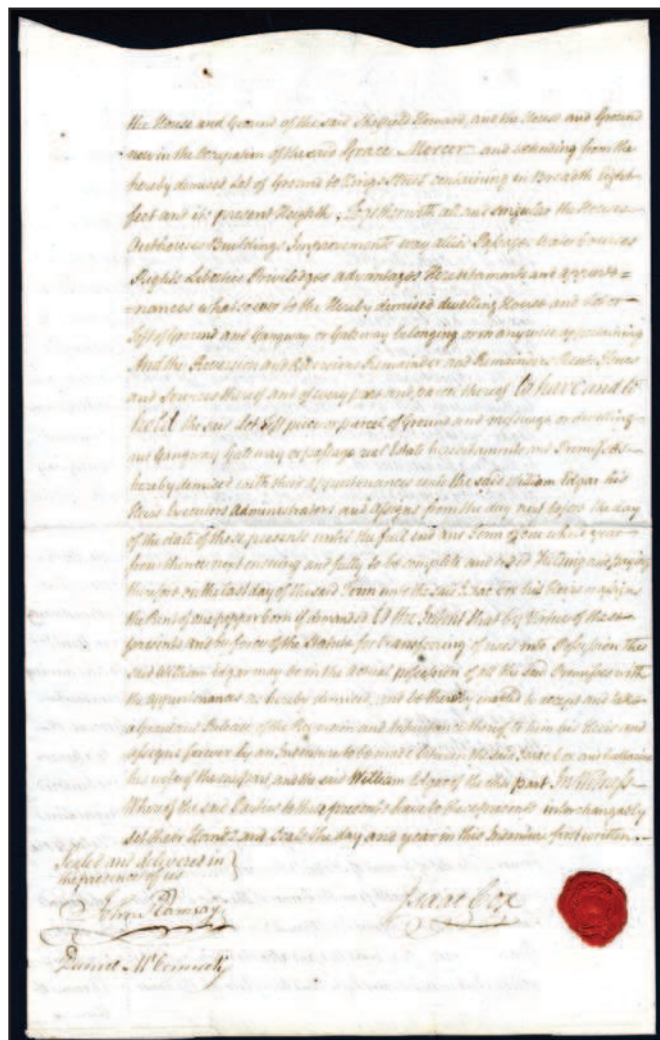 the House and Ground of the said Sheffield Howard, and the House and Ground
now in the Occupation of the said Grace Mercer and extending from the
hereby demised Lot of Ground to Kings Street containing in Breadth Eight
feet and its present Heighth, Together with all and singular the Houses
Outhouses Buildings Improvements ways allies Passages Water Courses
Rights Liberties Priviledges advantages Hereditaments and appurte=
=nances whatsoever to the Hereby demised dwelling House and Lot or
of Ground and Gangway or Gateway belonging or in any wise appertaining
And the Reversion and Reversions Remainder and Remainders Rents Issues
and Services thereof and of every part and parcel thereof To have and to
hold the said Lot piece or parcel of Ground and messuage or dwelling
Gangway Gateway or passage real Estate hereditaments and Premisses
hereby demised with their appurtenances unto the said William Edgar his
Heirs Executors Administrators and assigns from the day next before the day
of the date of these presents until the full end and Term of one whole year
from thence next ensuing and fully to be complete and ended Yielding and paying
therefore on the last day of the said Term unto the said Isaac Cox his Heirs or assigns
the Rent of one pepper Corn if demanded To the Intent that by Virtue of these
presents and by force of the Statute for transferring of uses into Possession the
said William Edgar may be in the actual possession of all the said Premisses with
the appurtenances as hereby demised, and be thereby enabled to accept and take
a Release of the Reversion and Inheritance thereof to him his Heirs and
assigns forever by an Indenture to be made between the said Isaac Cox and
his wife of the one part, and the said William Edgar of the other part In Witness
Whereof the said Parties to these presents have to these presents interchangeably
set their Hands and Seals the day and year in this Indenture first written
Sealed and delivered in
the presence of us
Ramsay
Isaac Cox
Daniel McCormick